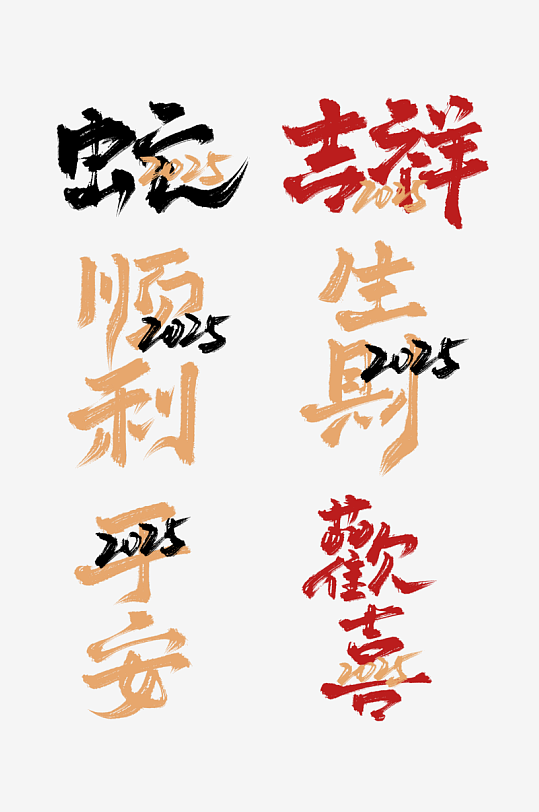 蛇
2025
吉祥
2025
顺利
2025
生財
2025
平安
2025
歡喜
2025